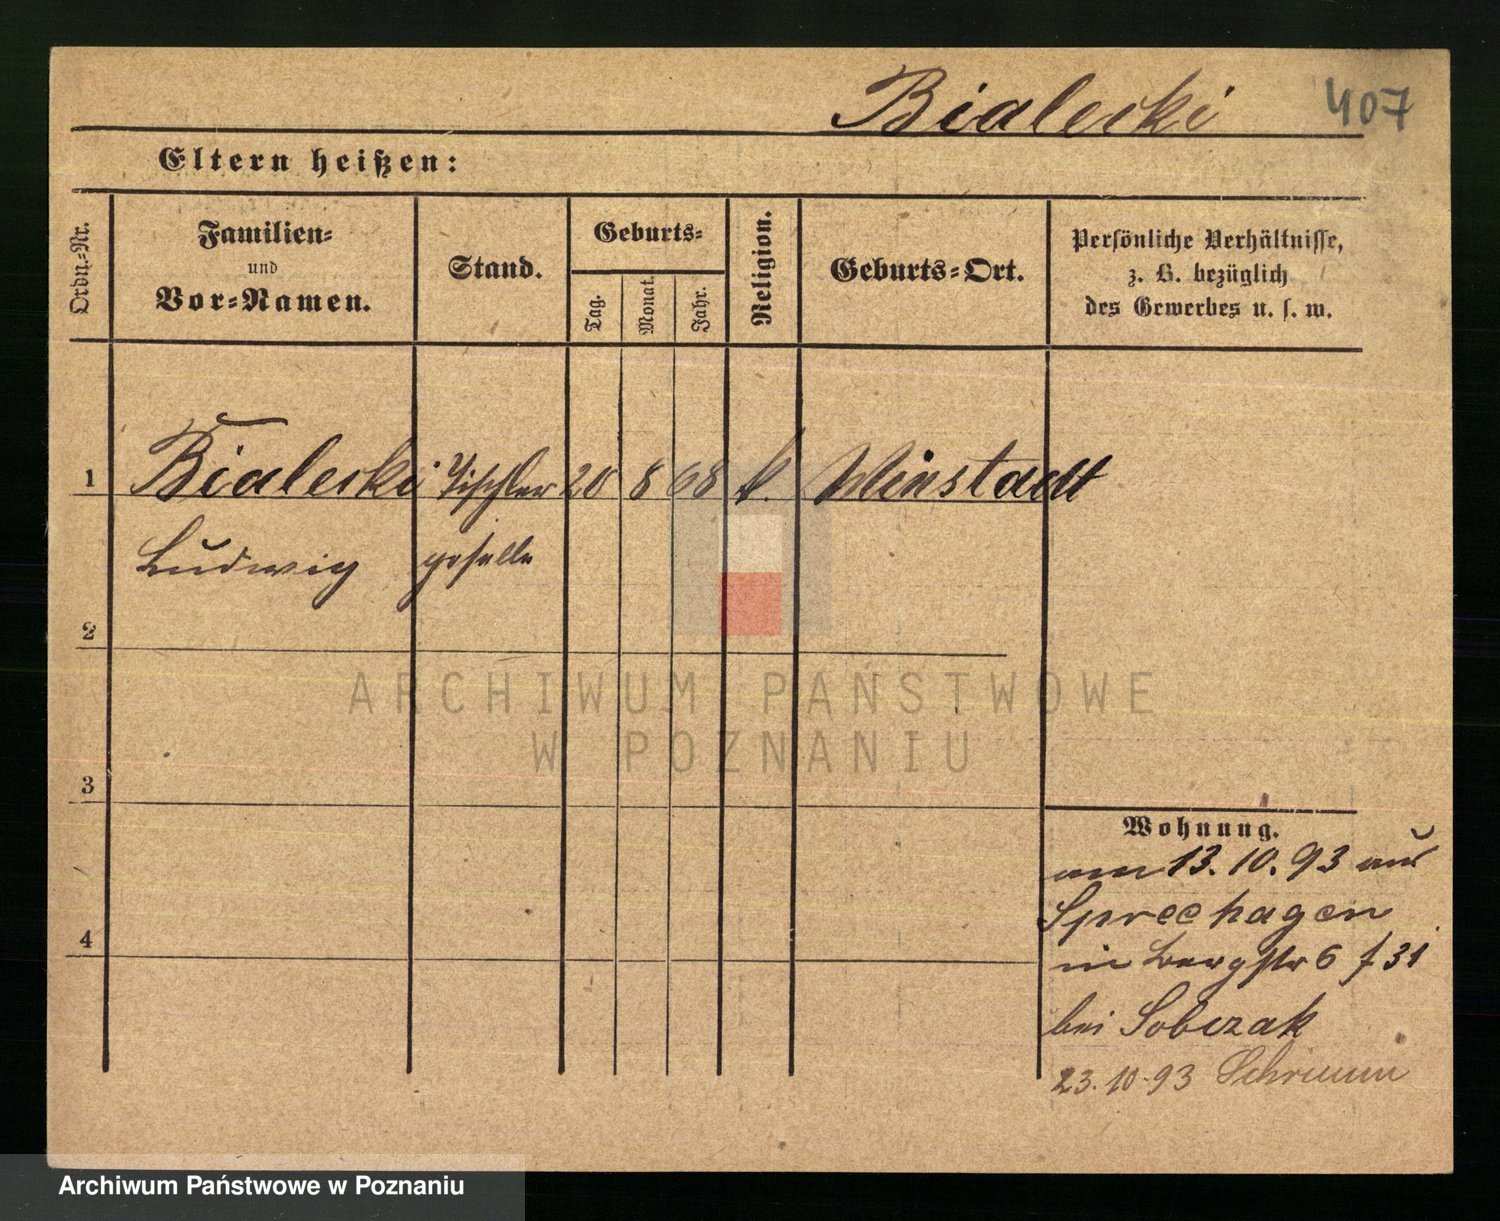 Bialecki 407
Eltern heißen:
Ordn.-Nr.
Familien-
und
Vor-Namen.
Stand.
Geburts-
Tag.
Monat.
Jahr.
Religion.
Geburts-Ort.
Persönliche Verhältnisse,
z. B. bezüglich
des Gewerbes u. s. w.
1 Bialecki Tischler 20 8 68 k. Winstadt
Ludwig geselle
2
ARCHIWUM PAŃSTWOWE
W POZNANIU
3
Wohnung.
am 13.10.93 aus
Sprechagen
4
in Bergstr 6 f 31
bei Sobczak
23.10.93 Schrimm
Archiwum Państwowe w Poznaniu